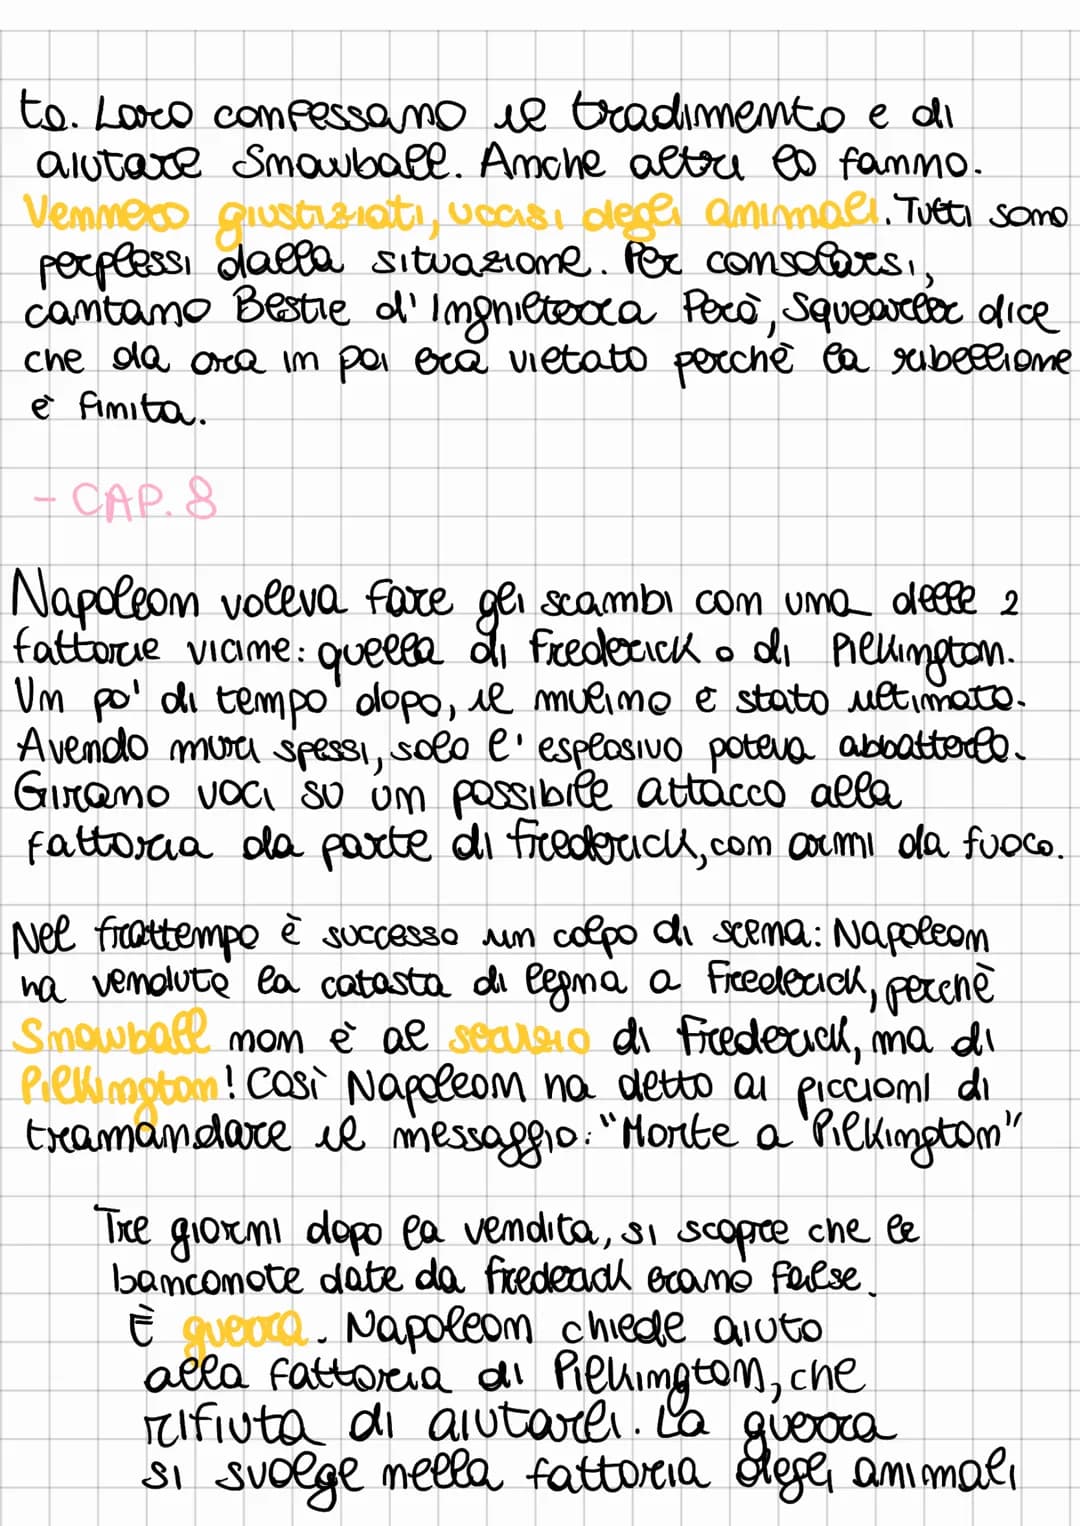 to. Loro confessano il tradimento e di
aiutare Snowball. Anche altri lo fanno.
Vennero giustiziati, uccisi degli animali. Tutti sono
perplessi dalla situazione. Per consolarsi,
cantano Bestie d'Inghilterra Però, Squearler dice
che da ora in poi era vietato perchè la ribellione
è finita.
- CAP. 8
Napoleon voleva fare gli scambi con una delle 2
fattorie vicine: quella di Frederick o di Pilkington.
Un po' di tempo dopo, il mulino è stato ultimato.
Avendo muri spessi, solo l'esplosivo poteva abbatterlo.
Girano voci su un possibile attacco alla
fattoria da parte di Frederick, con armi da fuoco.
Nel frattempo è successo un colpo di scena: Napoleon
ha venduto la catasta di legna a Freederick, perchè
Snowball non è al servizio di Frederick, ma di
Pilkington! Così Napoleon ha detto ai piccioni di
tramandare il messaggio: "Morte a Pilkington"
Tre giorni dopo la vendita, si scopre che le
banconote date da Frederick erano false.
È guerra. Napoleon chiede aiuto
alla fattoria di Pilkington, che
rifiuta di aiutarli. La guerra
si svolge nella fattoria degli animali